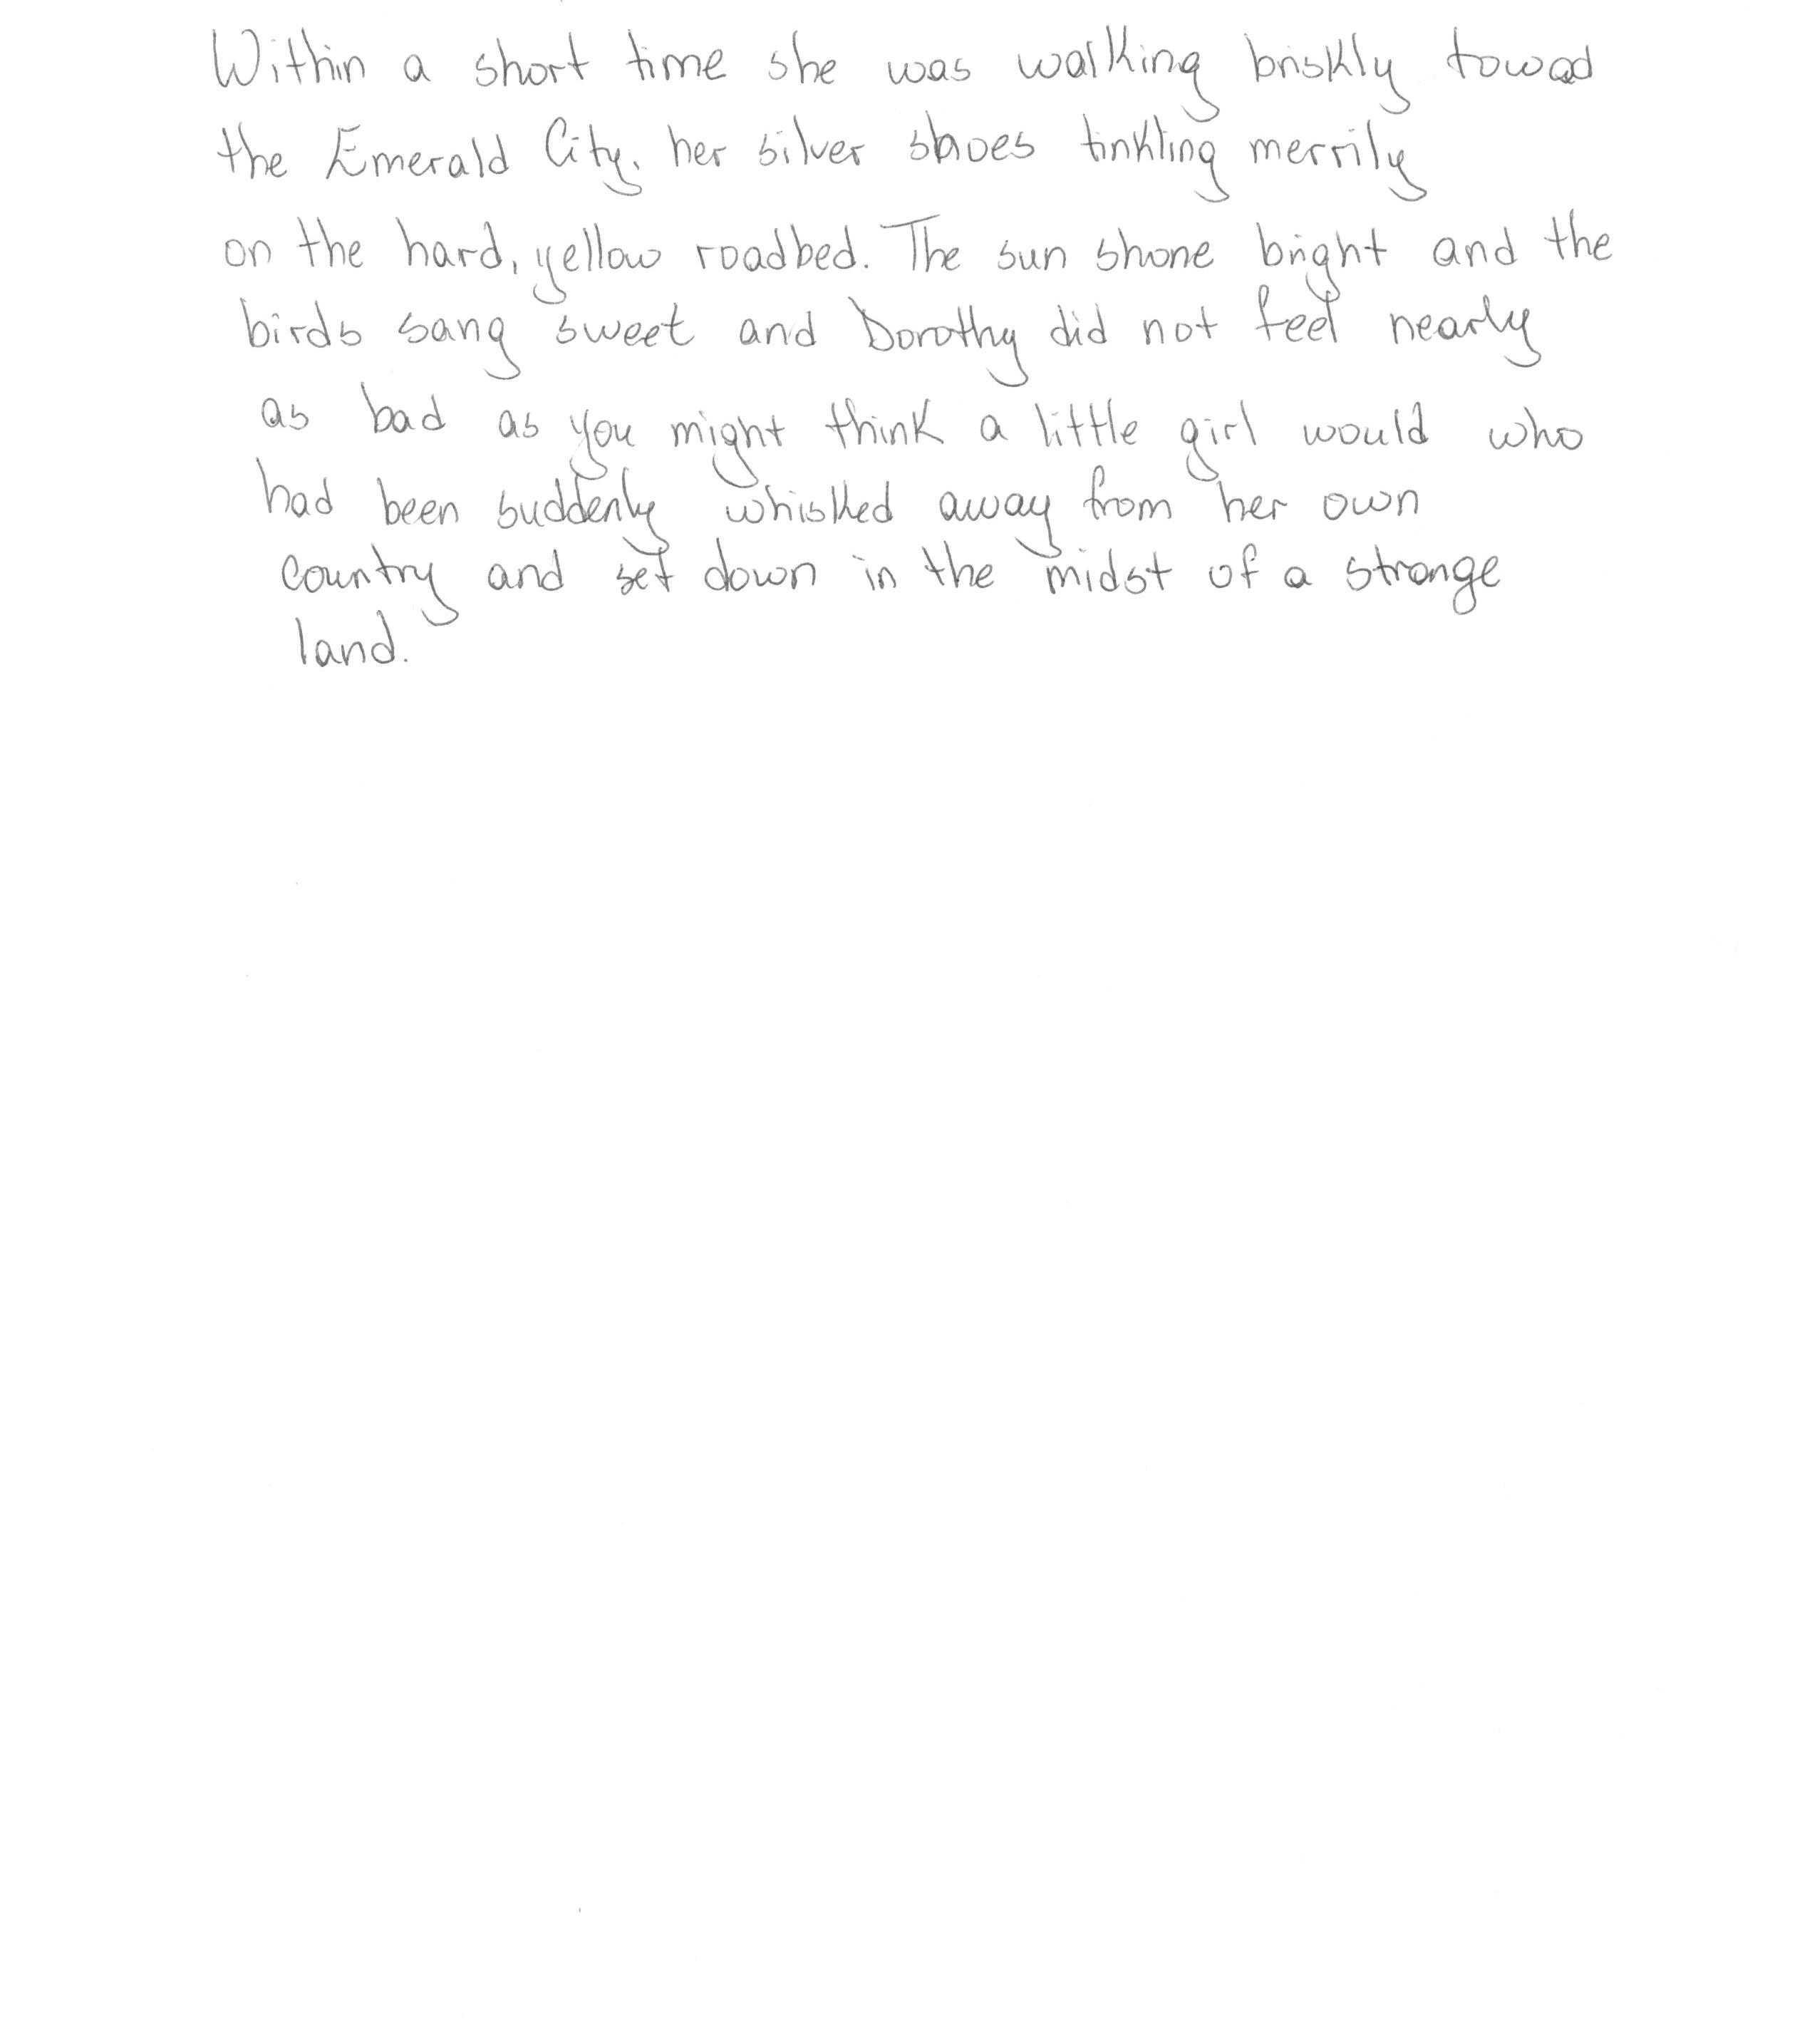 Within a short time she was walking briskly towad
the Emerald City, her silver shoes tinkling merrily
on the hard, yellow roadbed. The sun shone bright and the
birds sang sweet and Dorothy did not feel nearly
as bad as you might think a little girl would who
had been suddenly whisked away from her own
country and set down in the midst of a strange
land.